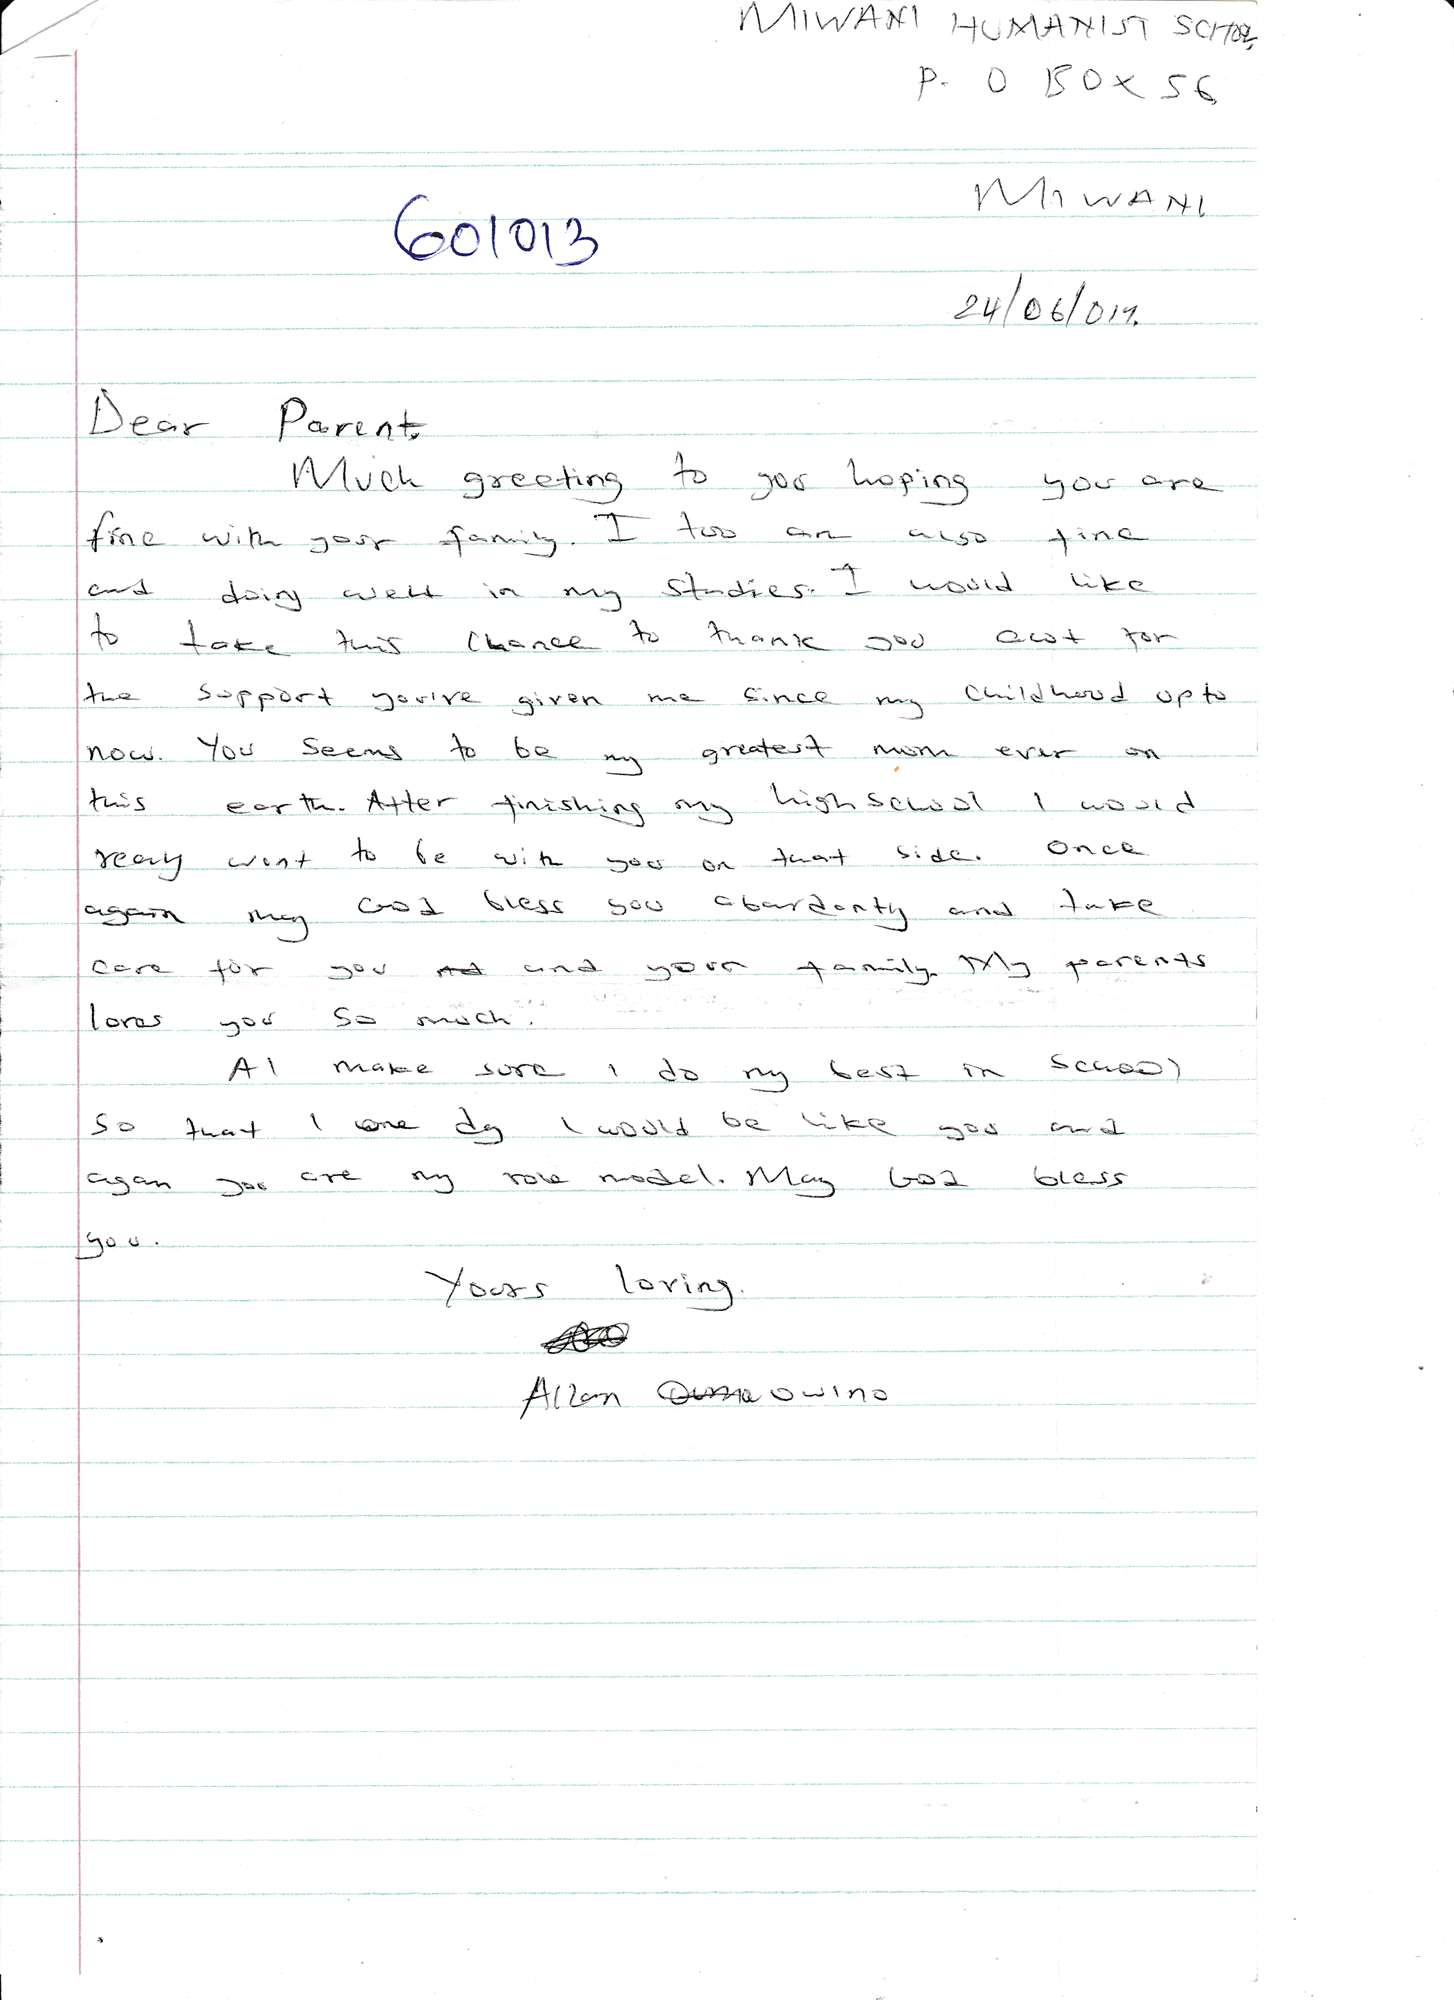 MIWANI HUMANIST SCHOOL
P. O BOX 56
MIWANI
601013
24/06/019.
Dear Parent,
Much greeting to you hoping you are
fine with your family. I too am also fine
and doing well in my studies. I would like
to take this chance to thank you alot for
the support you're given me since my childhood upto
now. You seems to be my greatest mom ever on
this earth. After finishing my highschool I would
really want to be with you on that side. Once
again may God bless you abundantly and take
care for you and your family. My parents
loves you so much.
Al make sure I do my best in school
so that I one dy I would be like you and
agan you are my role model. May God bless
you.
Yours loving.
Allan Owino